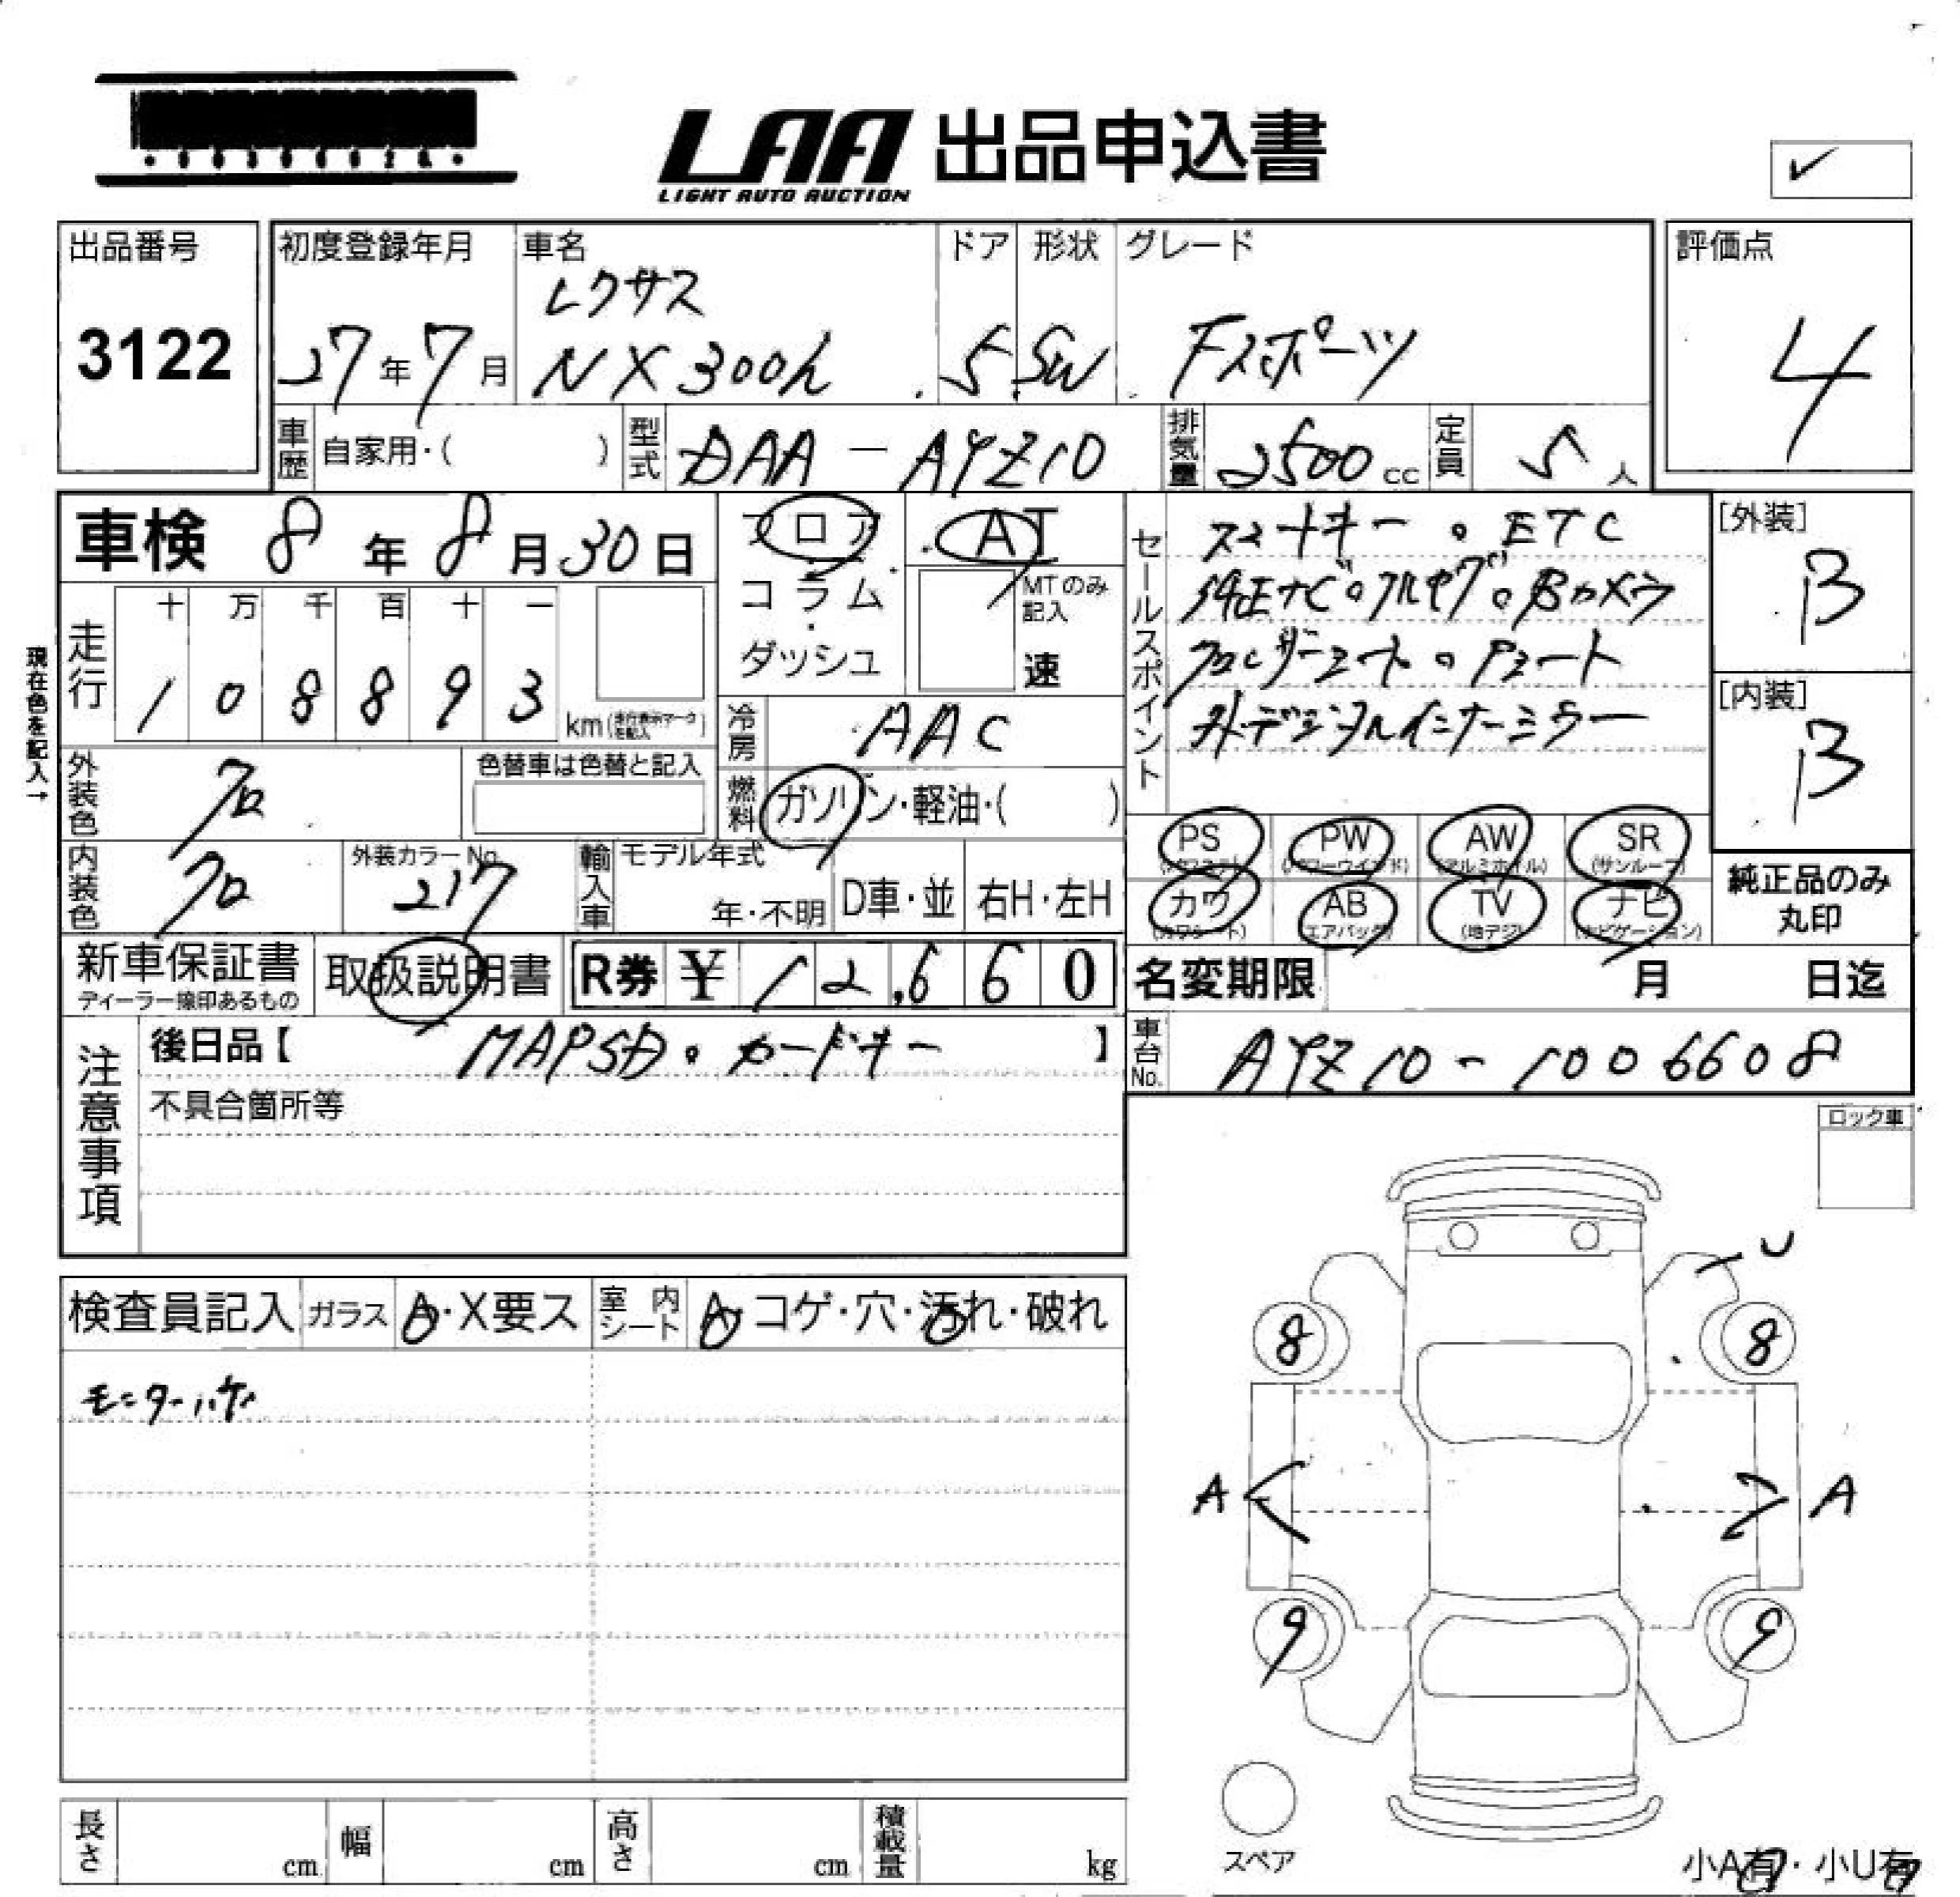 LAA 出品申込書
LIGHT AUTO AUCTION
✓
出品番号
3122
初度登録年月
27年7月
車名
レクサス
NX300h
ドア
5
形状
SW
グレード
Fスポーツ
評価点
4
車歴 自家用・( )
型式 DAA-AYZ10
排気量 2500cc
定員 5人
車検 8年8月30日
フロア
コラム
ダッシュ
AT
MTのみ記入
速
セールスポイント
スマートキー。ETC
純正ナビ。フルセグ。Bカメラ
クロレザーシート。Pシート
外デジタルインナーミラー
[外装]
B
[内装]
B
現在色を記入→
走行
十 万 千 百 十 一
1 0 8 8 9 3 km(走行表示マークを記入)
冷房 AAC
燃料 ガソリン・軽油・( )
外装色 クロ
色替車は色替と記入
内装色 クロ
外装カラーNo. 217
輸入車 モデル年式
年・不明
D車・並
右H・左H
PS (パワステ)
PW (パワーウインド)
AW (アルミホイル)
SR (サンルーフ)
カワ (カワシート)
AB (エアバッグ)
TV (地デジ)
ナビ (ナビゲーション)
純正品のみ
丸印
新車保証書
ディーラー捺印あるもの
取扱説明書
R券 ¥12,660
名変期限 月 日迄
注意事項
後日品【 MAPSD。カードキー 】
不具合箇所等
車台No. AYZ10-1006608
ロック車
検査員記入
ガラス A・X要ス
室内シート A・コゲ・穴・汚れ・破れ
モニターハゲ
U
8 8
A A
9 9
スペア
小A有・小U有
長さ cm
幅 cm
高さ cm
積載量 kg